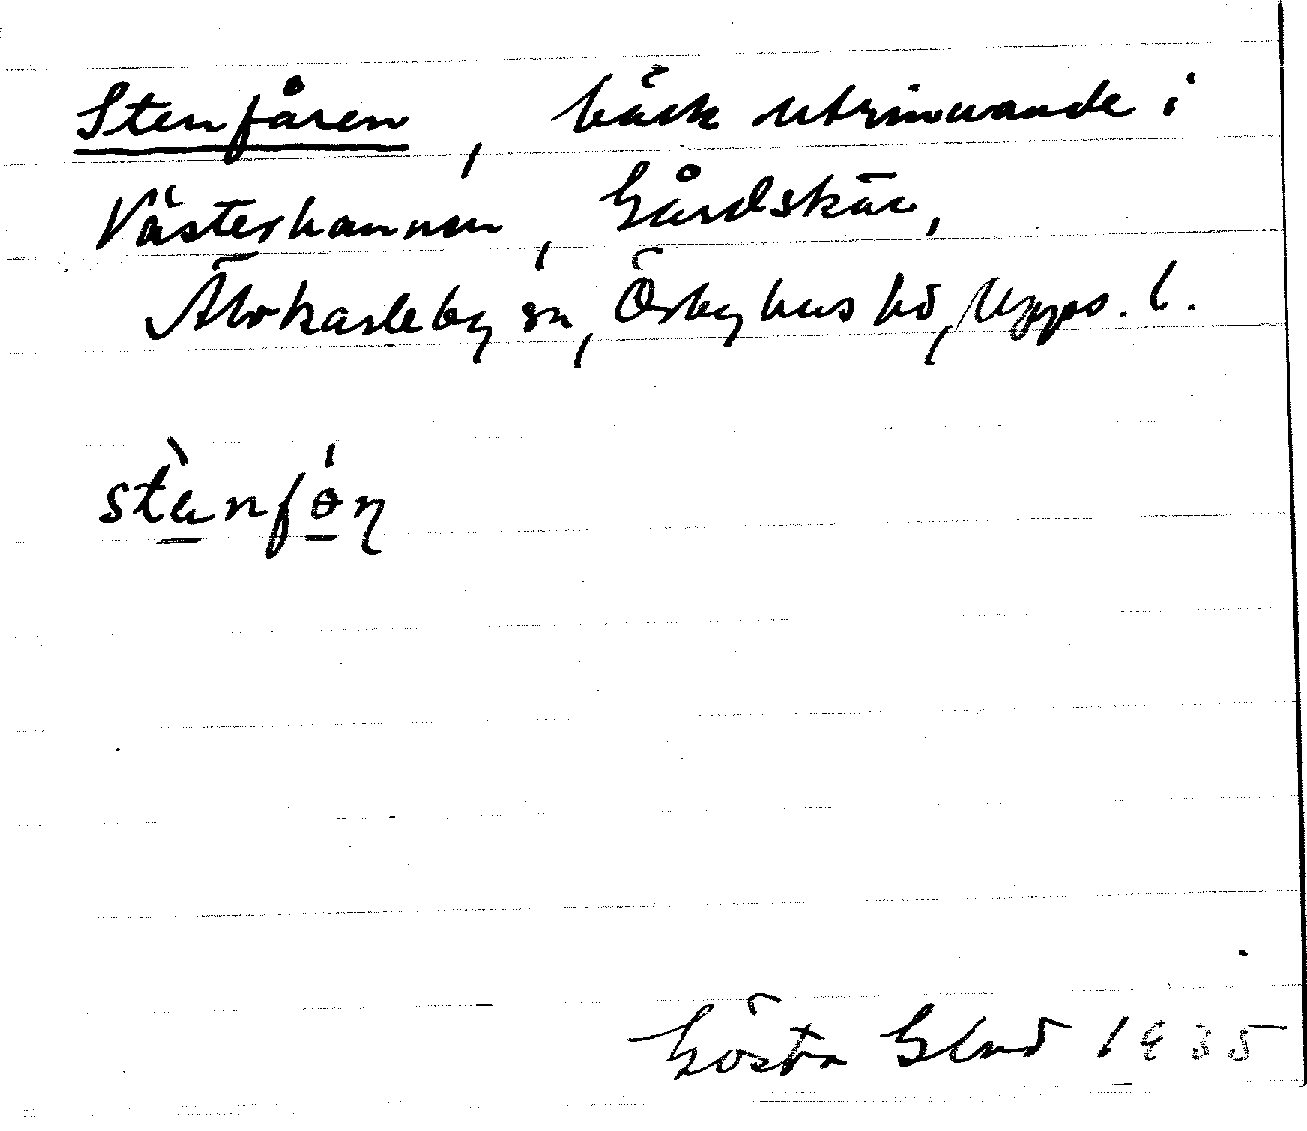 Stenfåren, bäck utrinnande i
Västerhamnen, Gårdskär,
Älvkarleby sn, Örbyhus hd, Upps. l.
stènfǿn
Gösta Glad 1935